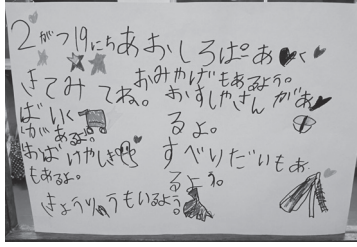 2がつ19にちあおしろぱーあく
きてみてね。
おみやげもあるよう。
おすしやさんがあ
るよ。
ばいく
があるよ。
おばけやしき
もあるよ。
すべりだいもあ
るよう。
きょうりゅうもいるよう。